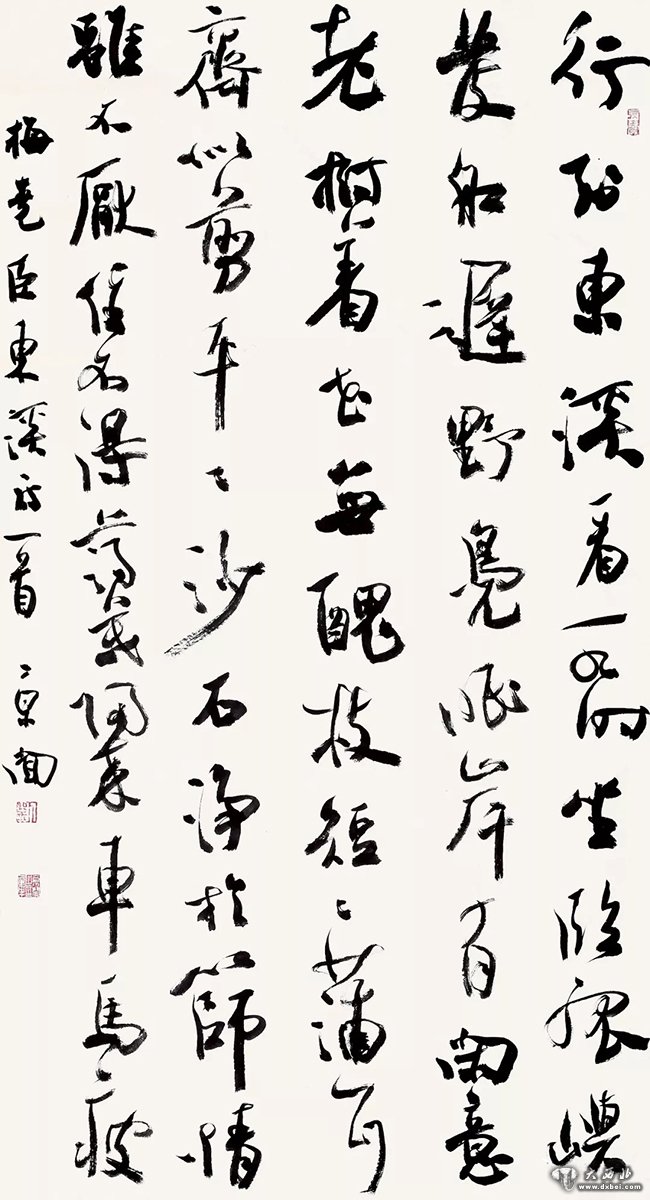 行到東溪看水時坐臨孤嶼
發船遲野鳧眠岸有閑意
老樹着花無醜枝短〻蒲耳
齊似剪平〻沙石淨於篩情
雖不厭住不得薄暮歸來車馬疲
梅堯臣東溪詩一首
大西北
www.dxbei.com